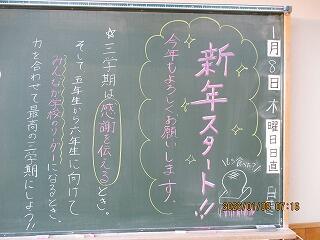 1月8日 木曜日 日直
新年スタート!!
今年もよろしくお願いします。
☆三学期は感謝を伝えるとき。
そして五年生から六年生に向けて
みんなが学校のリーダーになるとき。
力を合わせて最高の三学期にしよう!!